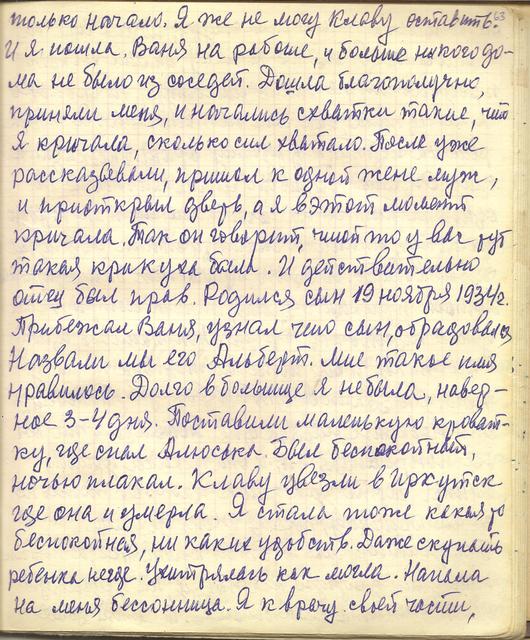 63
только начало. Я же не могу Клаву оставить.
И я пошла. Ваня на работе, и больше никого до-
ма не было из соседей. Дошла благополучно,
приняли меня, и начались схватки такие, что
я кричала, сколько сил хватало. После уже
рассказывали, пришол к одной жене муж,
и приоткрыл дверь, а я в этот момент
кричала. Так он говорит, что то у вас тут
такая крикуха была. И действительно
отец был прав. Родился сын 19 ноября 1934г.
Прибежал Ваня, узнал что сын, обрадовался
Назвали мы его Альберт. Мне такое имя
нравилось. Долго в больнице я не была, навер-
ное 3-4 дня. Поставили маленькую кроват-
ку, где спал Алюська. Был беспокойный,
ночью плакал. Клаву увезли в Иркутск
где она и умерла. Я стала тоже какая то
беспокойная, ни каких удобств. Даже скупать
ребенка негде. Ухитрялась как могла. Напала
на меня бессонница. Я к врачу своей части,